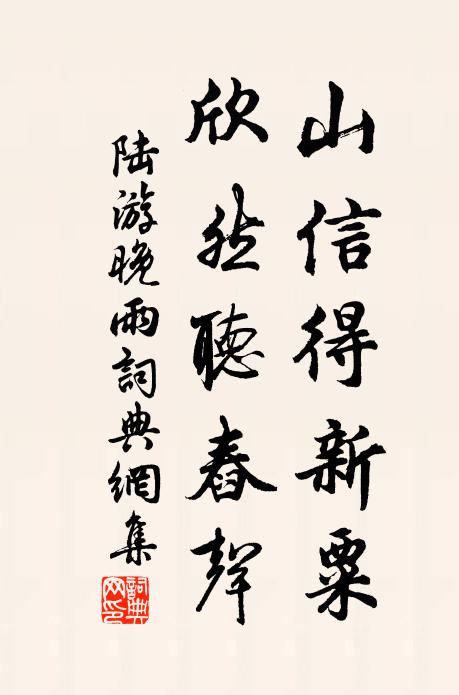 山信得新粟
欣然聽舂聲
陸游晚雨詞典網集
詞典网印